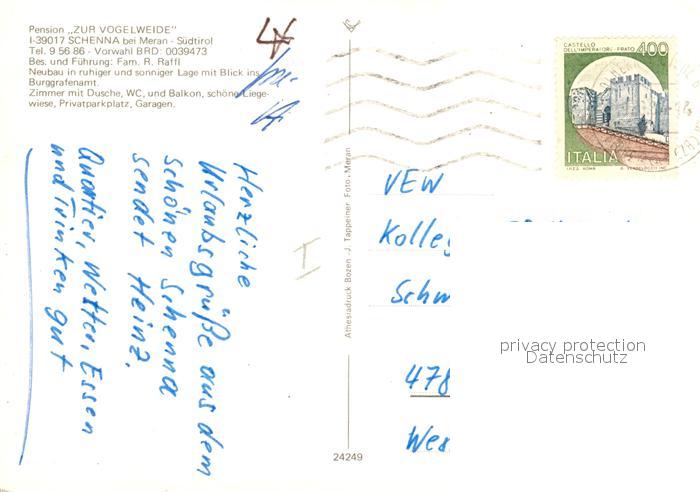 Pension „ZUR VOGELWEIDE"
I-39017 SCHENNA bei Meran - Südtirol
Tel. 9 56 86 - Vorwahl BRD: 0039473
Bes. und Führung: Fam. R. Raffl
Neubau in ruhiger und sonniger Lage mit Blick ins
Burggrafenamt.
Zimmer mit Dusche, WC, und Balkon, schöne Liege-
wiese, Privatparkplatz, Garagen.
Herzliche
Urlaubsgrüße aus dem
schönen Schenna
sendet Heinz.
Quartier, Wetter, Essen
und Trinken gut
Athesiadruck Bozen - J. Tappeiner Foto - Meran
24249
CASTELLO
DELL'IMPERATORE · PRATO
400
ITALIA
I.P.Z.S. ROMA
VEW
Kolleg
Schw
478
privacy protection
Datenschutz